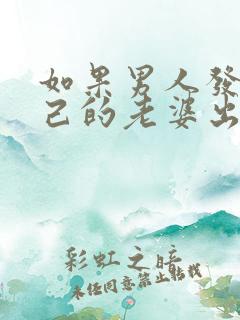 如果男人發
己的老婆出
彩虹之暗
未任同意禁止轉載